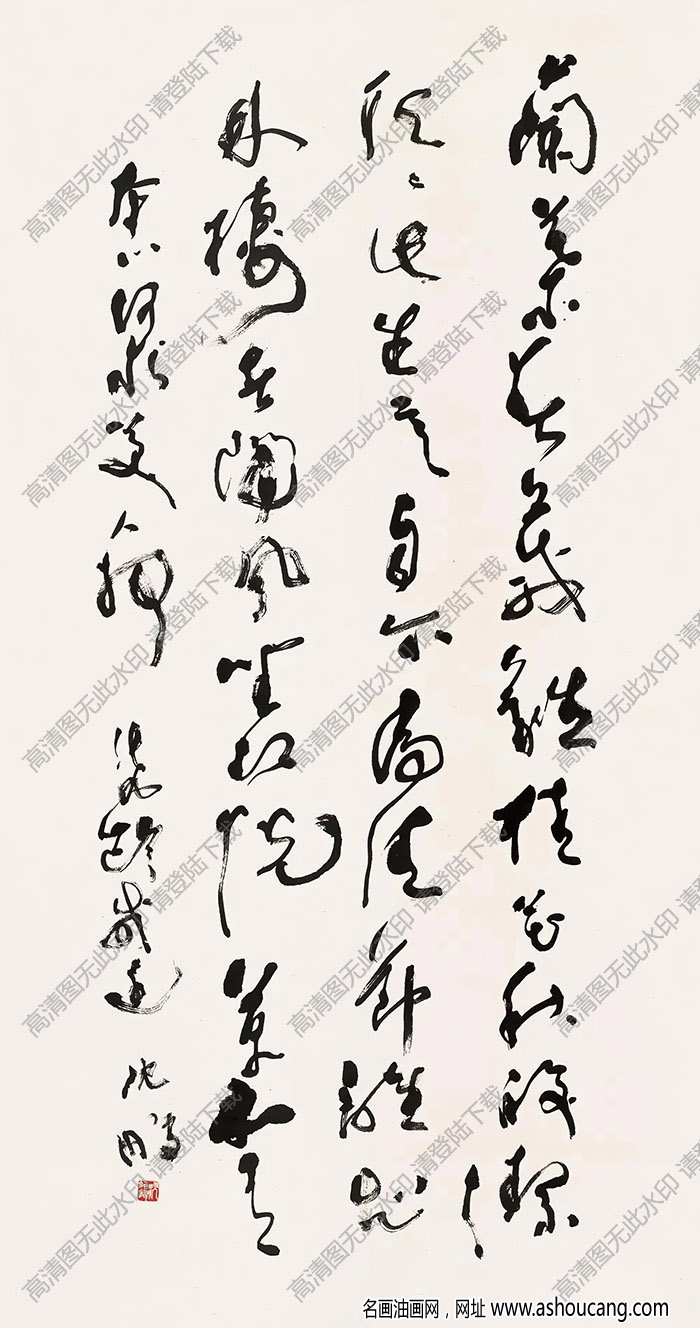 蘭葉春葳蕤桂花秋皎潔
欣〻此生意自尔為佳節誰知
林棲者聞風坐相悦草木有
本心何求美人折 張九齡感遇 沈鵬
高清图无此水印 请登陆下载
名画油画网，网址 www.ashoucang.com